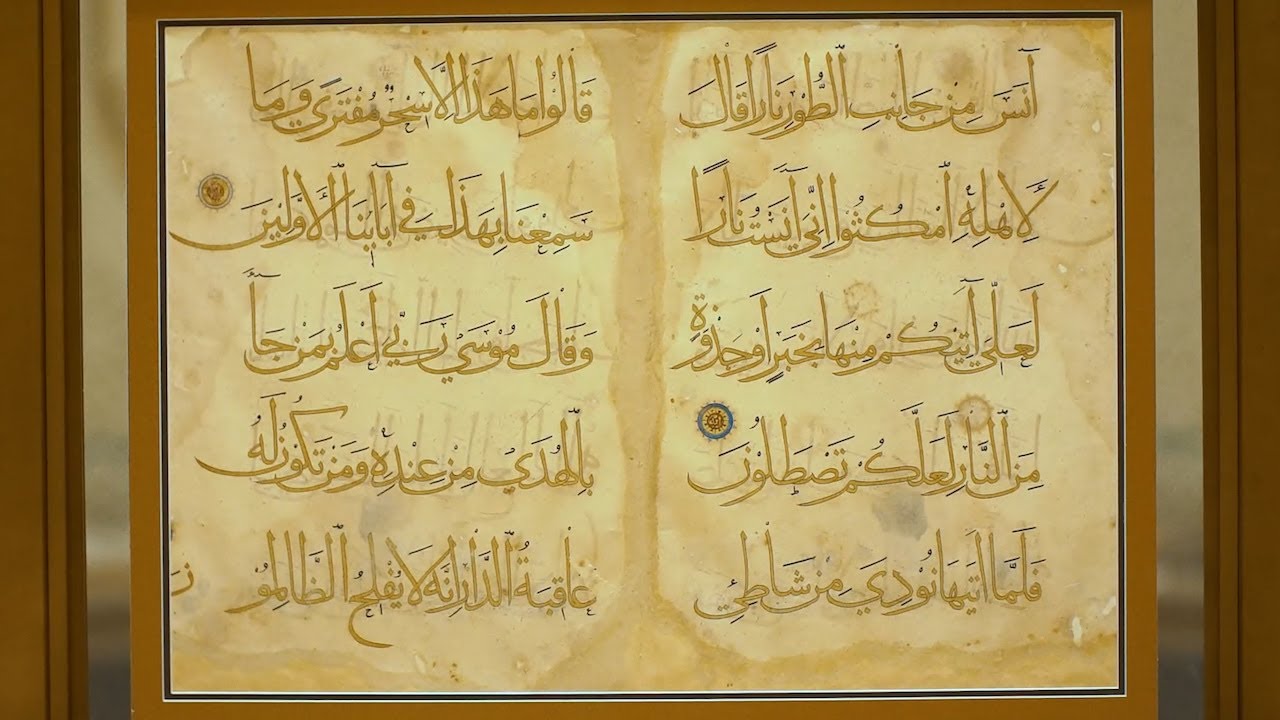 آنَسَ مِنْ جَانِبِ الطُّورِ نَارًا قَالَ
لِأَهْلِهِ امْكُثُوا إِنِّي آنَسْتُ نَارًا
لَعَلِّي آتِيكُمْ مِنْهَا بِخَبَرٍ أَوْ جَذْوَةٍ
مِنَ النَّارِ لَعَلَّكُمْ تَصْطَلُونَ
فَلَمَّا أَتَيهَا نُودِيَ مِنْ شَاطِئِ
قَالُوا مَا هَذَا إِلَّا سِحْرٌ مُفْتَرًى وَمَا
سَمِعْنَا بِهَذَا فِي آبَائِنَا الْأَوَّلِينَ
وَقَالَ مُوسَى رَبِّي أَعْلَمُ بِمَنْ جَاءَ
بِالْهُدَى مِنْ عِنْدِهِ وَمَنْ تَكُونُ لَهُ
عَاقِبَةُ الدَّارِ إِنَّهُ لَا يُفْلِحُ الظَّالِمُونَ